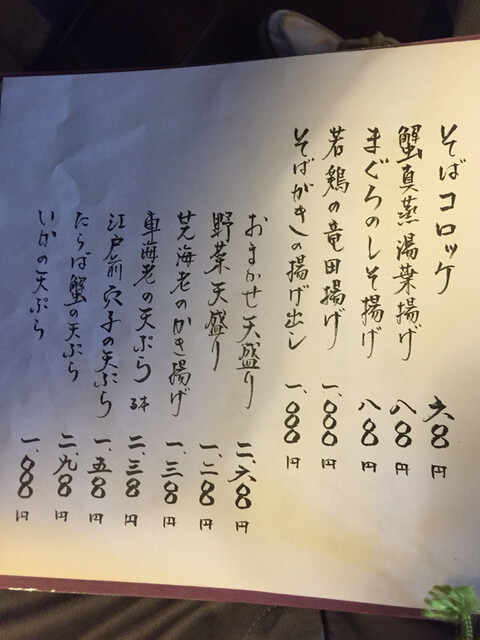 そばコロッケ 六〇〇円
蟹真蒸湯葉揚げ 八〇〇円
まぐろのしそ揚げ 八〇〇円
若鶏の竜田揚げ 一、〇〇〇円
そばがきの揚げ出し 一、〇〇〇円
おまかせ天盛り 二、六〇〇円
野菜天盛り 一、二〇〇円
芝海老のかき揚げ 一、三〇〇円
車海老の天ぷら 二、三〇〇円
江戸前穴子の天ぷら 一、五〇〇円
たらば蟹の天ぷら 二、九〇〇円
いかの天ぷら 一、〇〇〇円